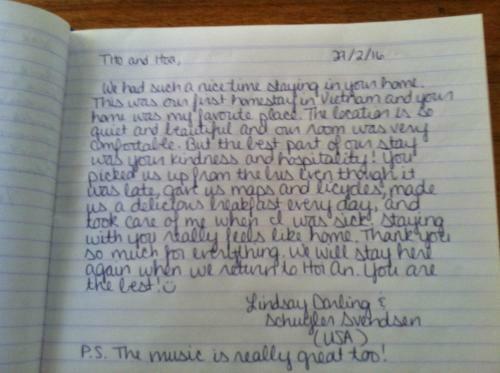 Tito and Hoa,
27/2/16
We had such a nice time staying in your home.
This was our first homestay in Vietnam and your
home was my favorite place. The location is so
quiet and beautiful and our room was very
comfortable. But the best part of our stay
was your kindness and hospitality! You
picked us up from the bus even though it
was late, gave us maps and bicycles, made
us a delicious breakfast every day, and
took care of me when I was sick. Staying
with you really feels like home. Thank you
so much for everything. We will stay here
again when we return to Hoi An. You are
the best! ☺
Lindsay Darling &
Schuyler Svendsen
(USA)
P.S. The music is really great too!